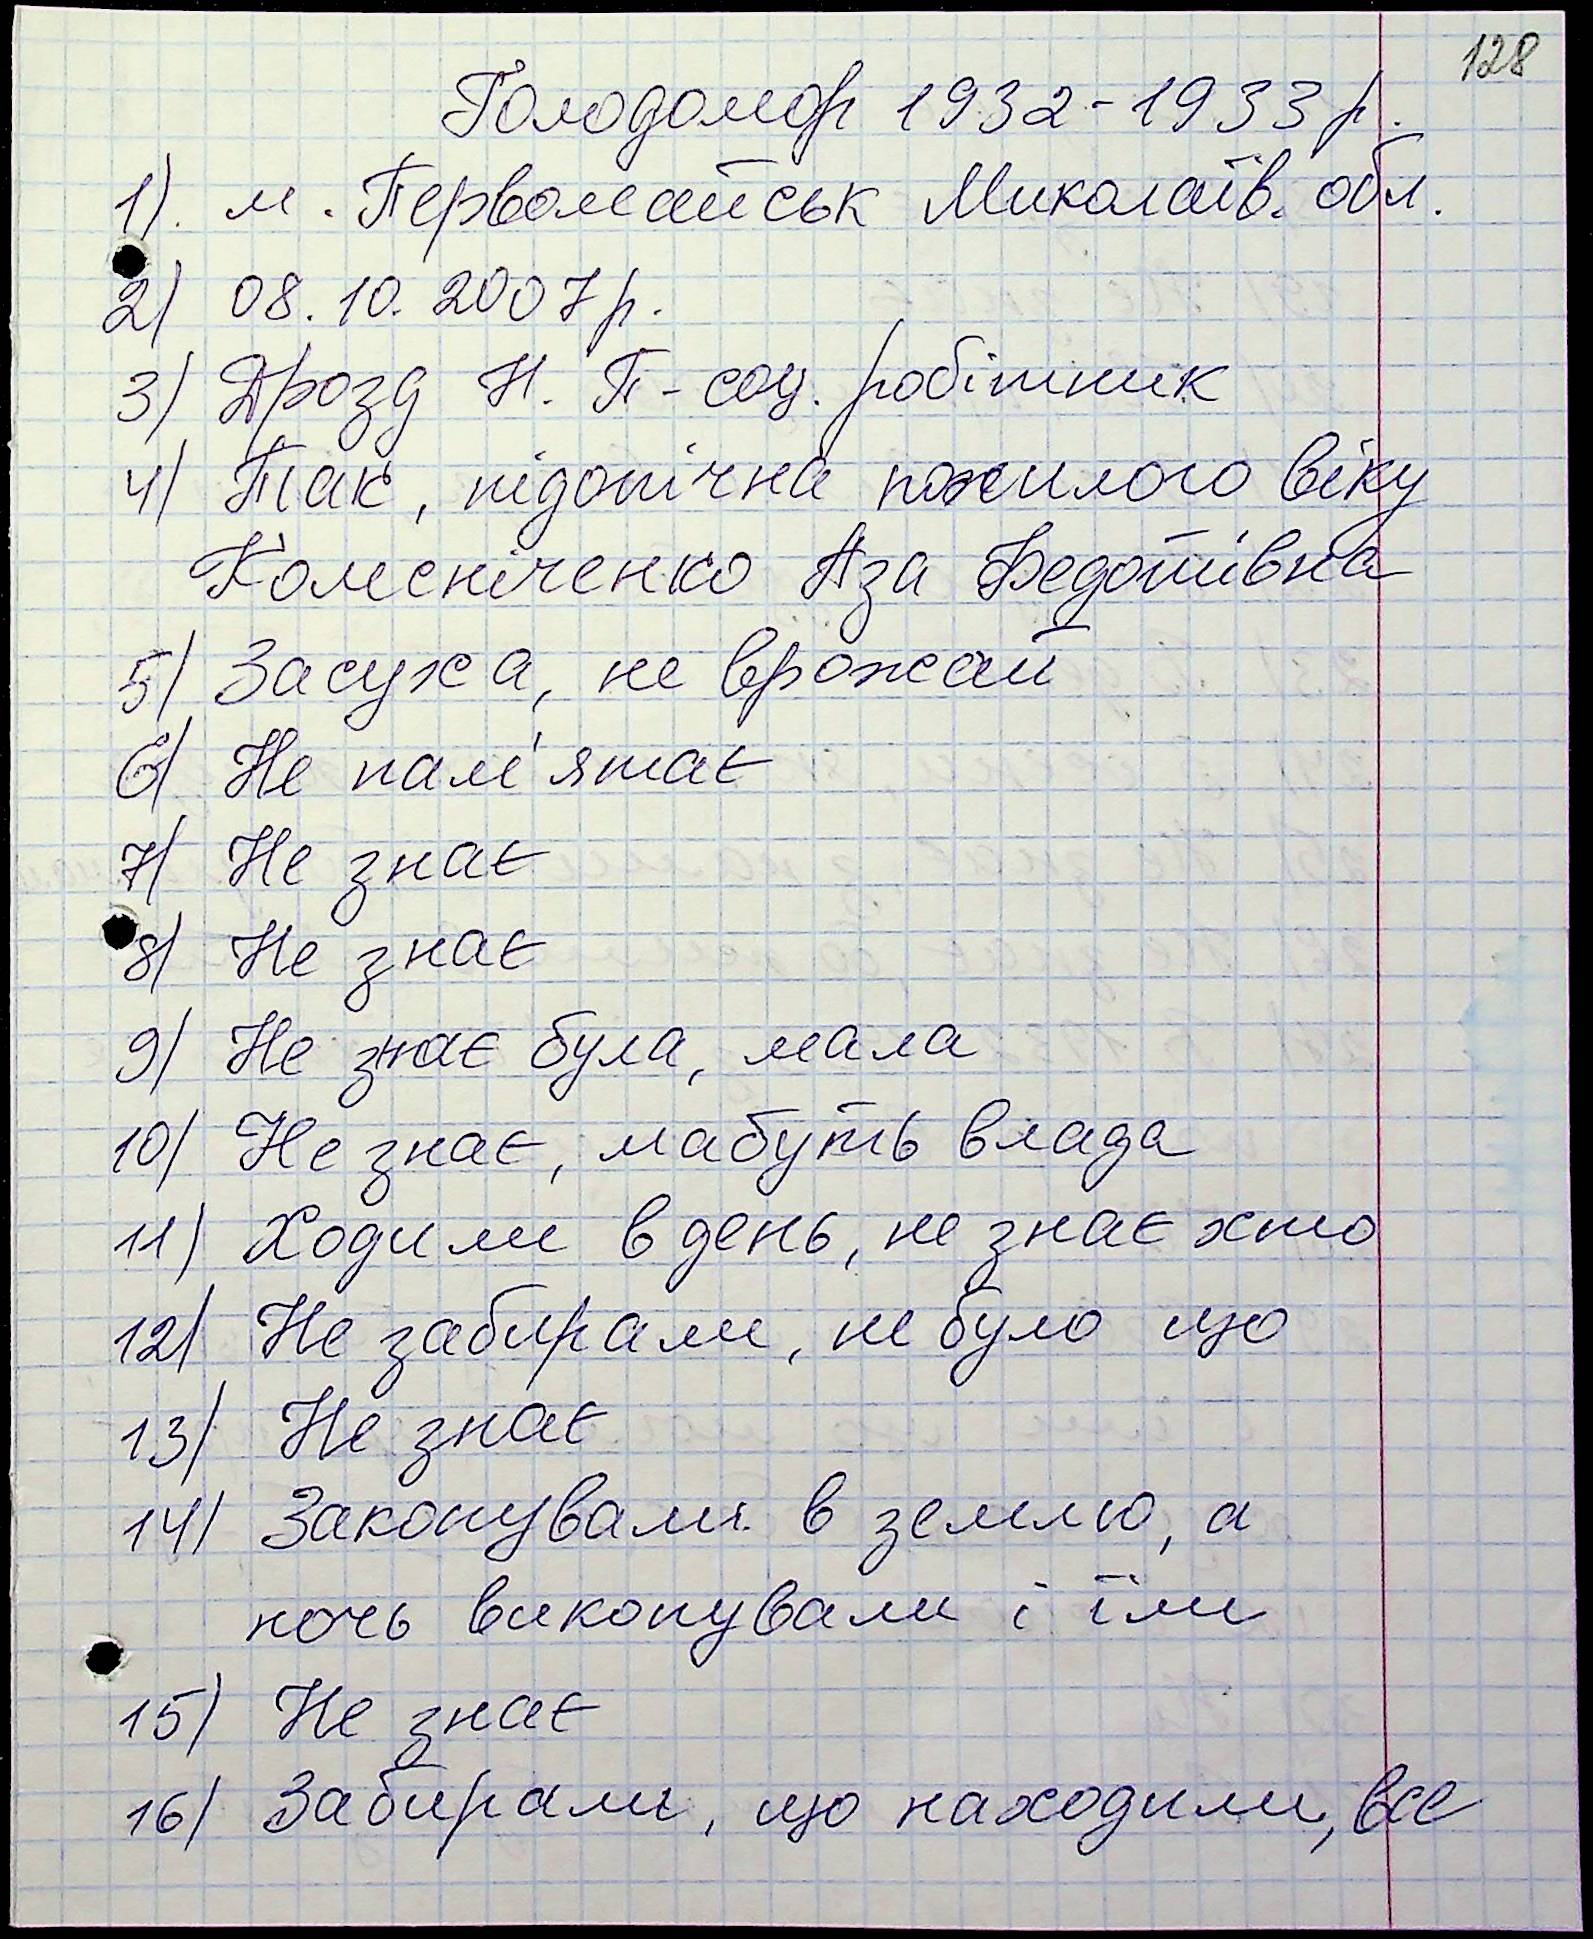 128
Голодомор 1932-1933 р.
1). м. Первомайськ Миколаїв. обл.
2) 08.10.2007р.
3) Дрозд Н. П - соц. робітник
4) Так, підопічна похилого віку
Коменіченко Аза Федотівна
5) Засуха, не врожай
6) Не пам'ятає
7) Не знає
8) Не знає
9) Не знає була, мала
10) Не знає, мабуть влада
11) Ходили в день, не знає хто
12) Не забирали, не було що
13) Не знає
14) Закопували в землю, а
ночь викопували і їли
15) Не знає
16) Забирали, що находили, все